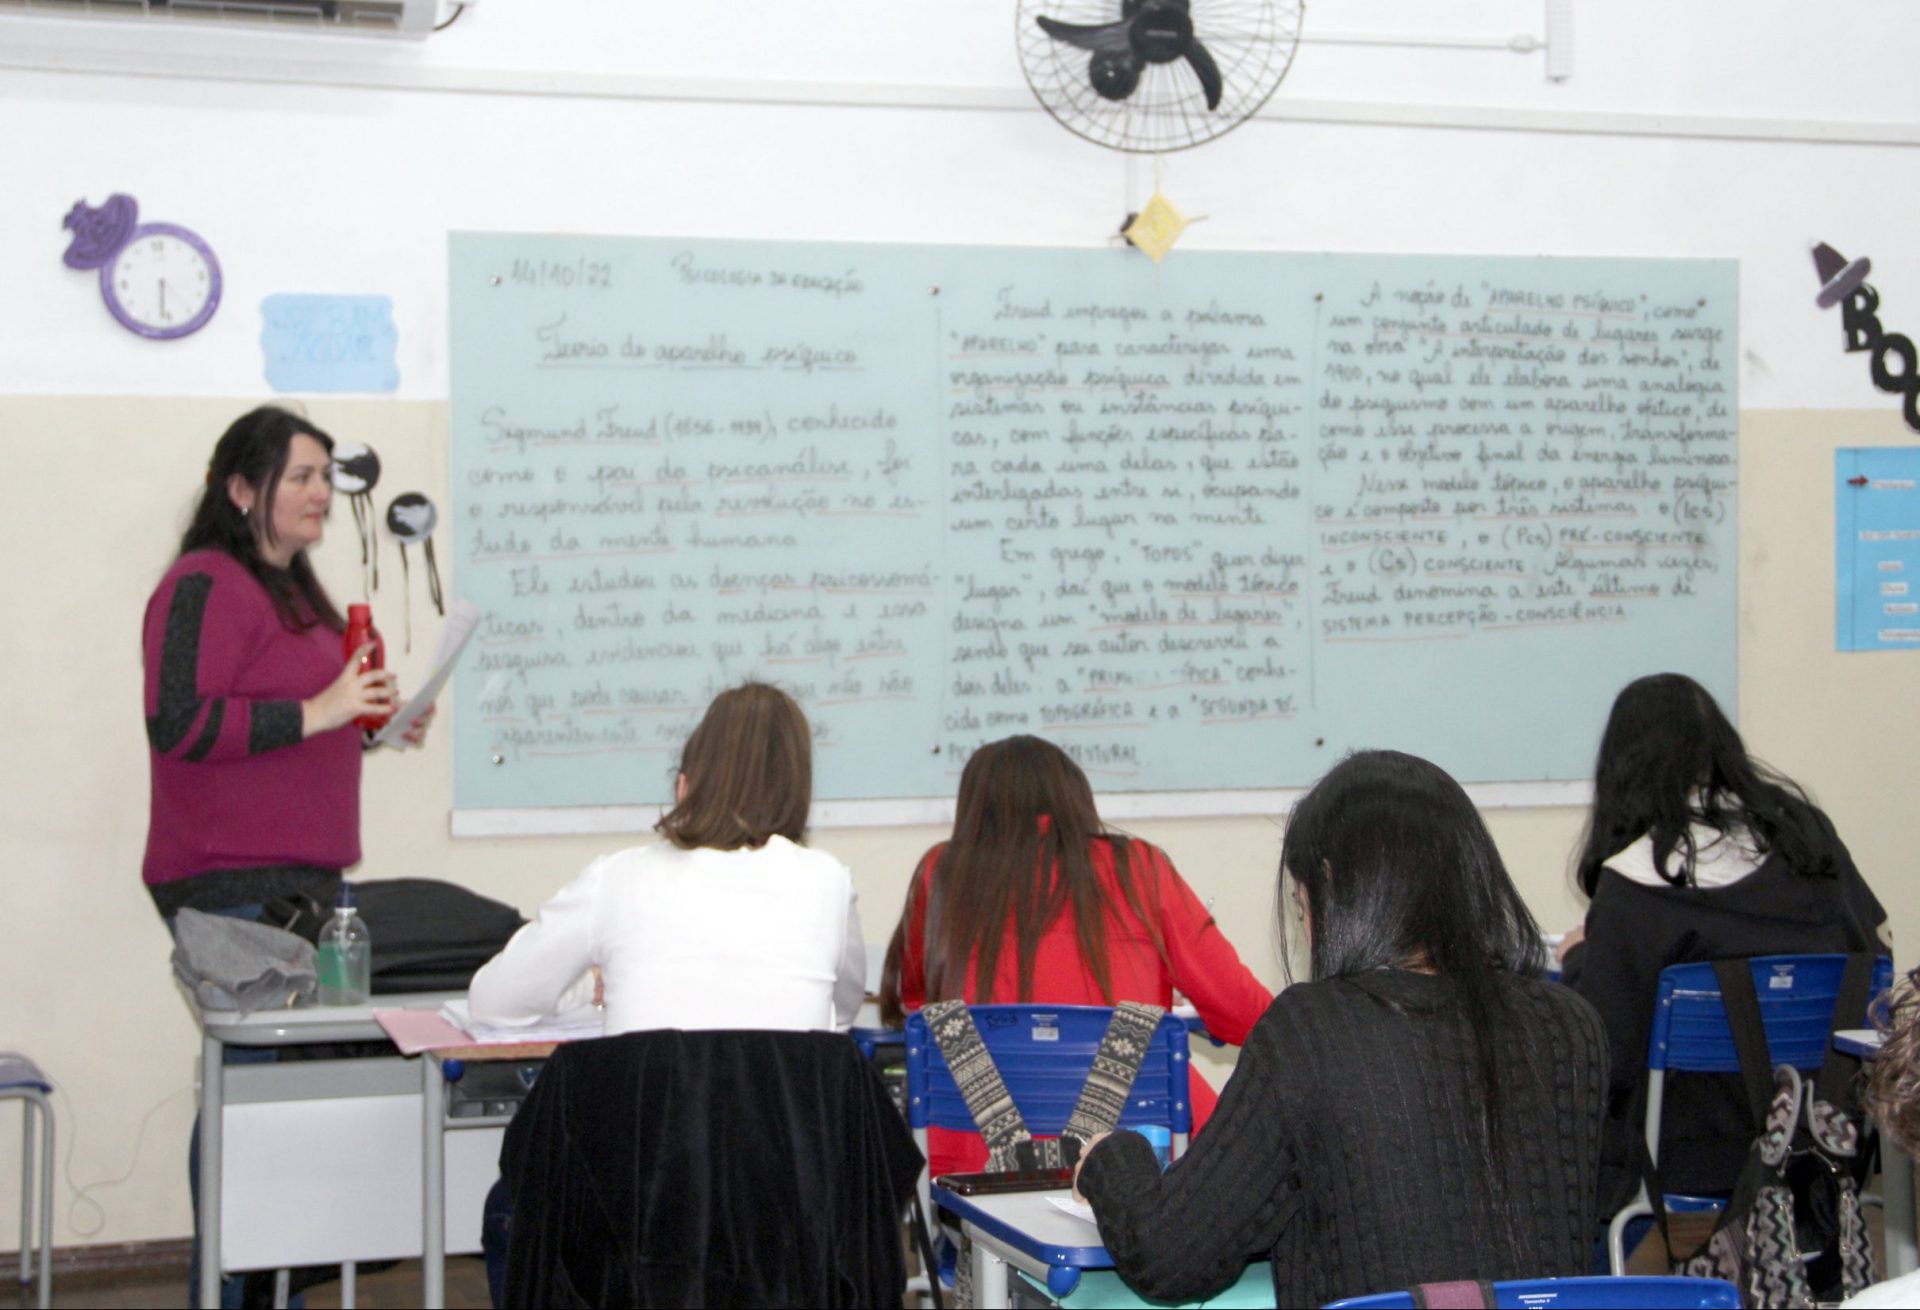 14/10/22 PSICOLOGIA DA EDUCAÇÃO
Teoria do aparelho psíquico
Sigmund Freud (1856-1939), conhecido
como o pai da psicanálise, foi
o responsável pela revolução no es-
tudo da mente humana
Ele estudou as doenças psicossomá-
ticas, dentro da medicina e essa
pesquisa evidenciou que há algo entre
nós que pode causar que não são
aparentemente
Freud empregou a palavra
"APARELHO" para caracterizar uma
organização psíquica dividida em
sistemas ou instâncias psíqui-
cas, com funções específicas pa-
ra cada uma delas, que estão
interligadas entre si, ocupando
um certo lugar na mente.
Em grego, "TOPOS" quer dizer
"lugar", daí que o modelo tópico
designa um "modelo de lugares",
sendo que seu autor descreveu a
dois deles. a conhe-
cida como TOPOGRÁFICA e a "SEGUNDA TÓ-
A noção de "APARELHO PSÍQUICO", como
um conjunto articulado de lugares surge
na obra "A interpretação dos sonhos", de
1900, no qual ele elabora uma analogia
do psiquismo com um aparelho óptico, de
como esse processa a origem, transforma-
ção e o objetivo final da energia luminosa.
Nesse modelo tópico, o aparelho psíqui-
co é composto por três sistemas: o (Ics)
INCONSCIENTE, o (Pcs) PRÉ-CONSCIENTE
e o (Cs) CONSCIENTE. Algumas vezes,
Freud denomina a este último de
SISTEMA PERCEPÇÃO-CONSCIÊNCIA
BOO